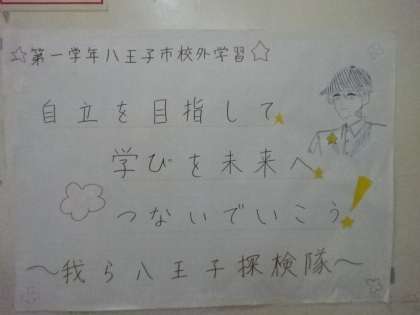 ☆第一学年八王子市校外学習☆
自立を目指して
学びを未来へ
つないでいこう!
〜我ら八王子探検隊〜